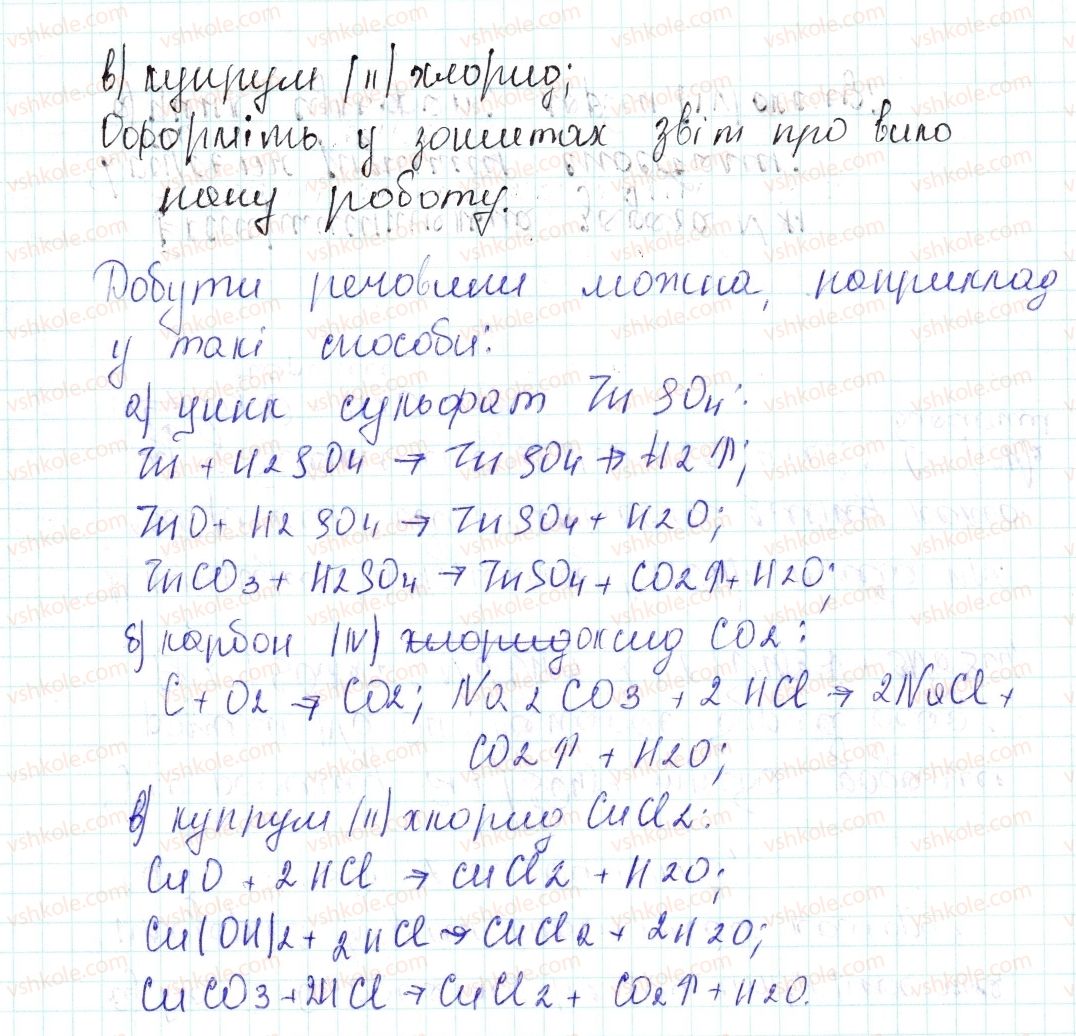 в) купрум (II) хлорид;
Оформіть у зошитах звіт про вико
нану роботу.
Добути речовини можна, наприклад
у такі способи:
а) цинк сульфат ZnSO4:
Zn + H2SO4 → ZnSO4 + H2↑;
ZnO + H2SO4 → ZnSO4 + H2O;
ZnCO3 + H2SO4 → ZnSO4 + CO2↑ + H2O;
б) карбон (IV) хлоридоксид CO2:
C + O2 → CO2; Na2CO3 + 2HCl → 2NaCl +
CO2↑ + H2O;
в) купрум (II) хлорид CuCl2:
CuO + 2HCl → CuCl2 + H2O;
Cu(OH)2 + 2HCl → CuCl2 + 2H2O;
CuCO3 + 2HCl → CuCl2 + CO2↑ + H2O.